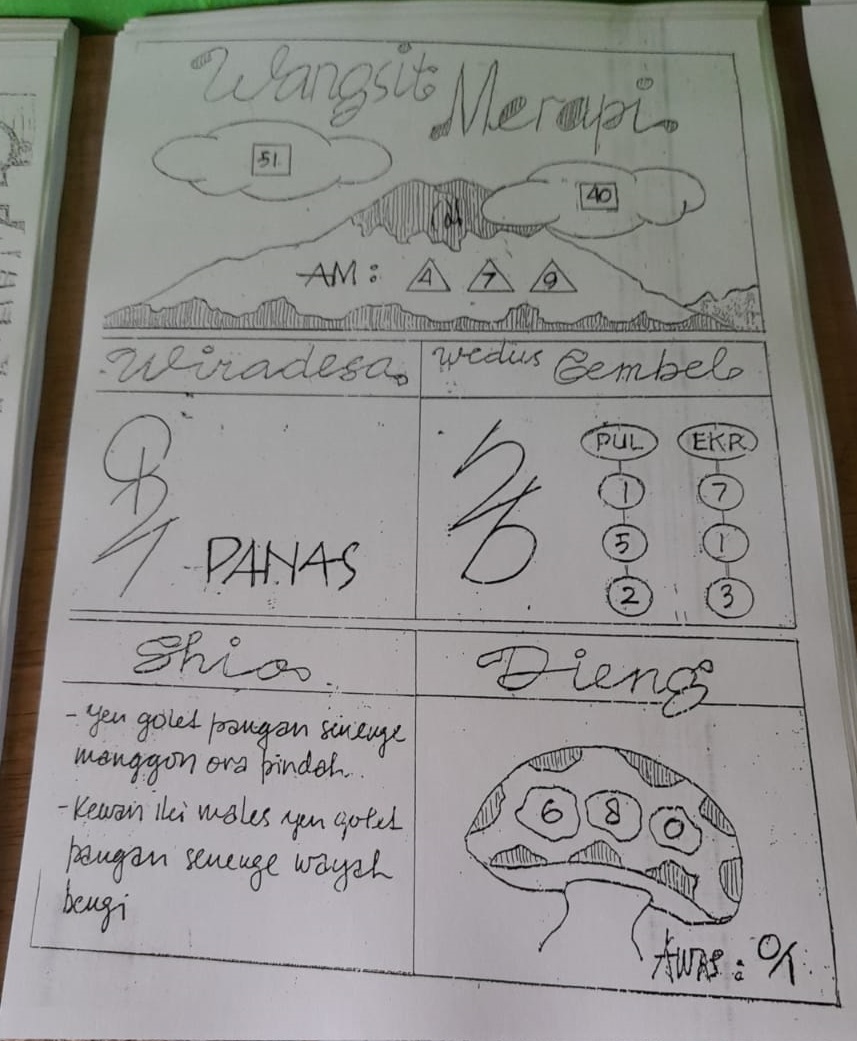 Wangsit Merapi
51
40
AM : 4 7 9
Wiradesa
wedus Gembel
PANAS
PUL EKR
1 7
5 1
2 3
Shio
Dieng
- Yen golet pangan senenge
manggon ora pindah.
- Kewan iki males yen golet
pangan senenge wayah
bengi
6 8 0
AWAS : 0/1